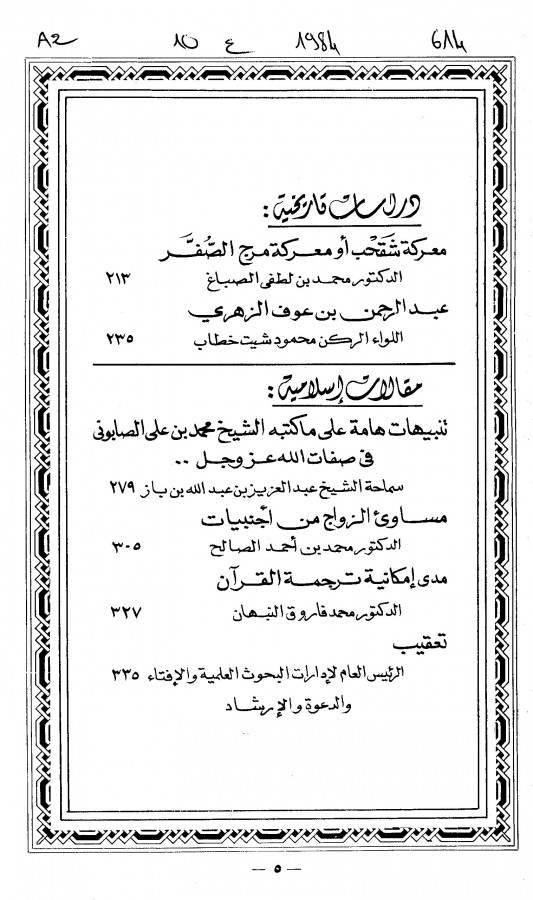 A2 10 ع 1984 684
دراسات تاريخية :
معركة شَقْحَب أو معركة مرج الصُّفَّر
الدكتور محمد بن لطفي الصباغ ٢١٣
عبد الرحمن بن عوف الزهري
اللواء الركن محمود شيت خطاب ٢٣٥
مقالات إسلامية :
تنبيهات هامة على ما كتبه الشيخ محمد بن علي الصابوني
في صفات الله عز وجل ..
سماحة الشيخ عبد العزيز بن عبد الله بن باز ٢٧٩
مساوئ الزواج من أجنبيات
الدكتور محمد بن أحمد الصالح ٣٠٥
مدى إمكانية ترجمة القرآن
الدكتور محمد فاروق النبهان ٣٢٧
تعقيب
الرئيس العام لإدارات البحوث العلمية والإفتاء ٣٣٥
والدعوة والإرشاد
— ٥ —